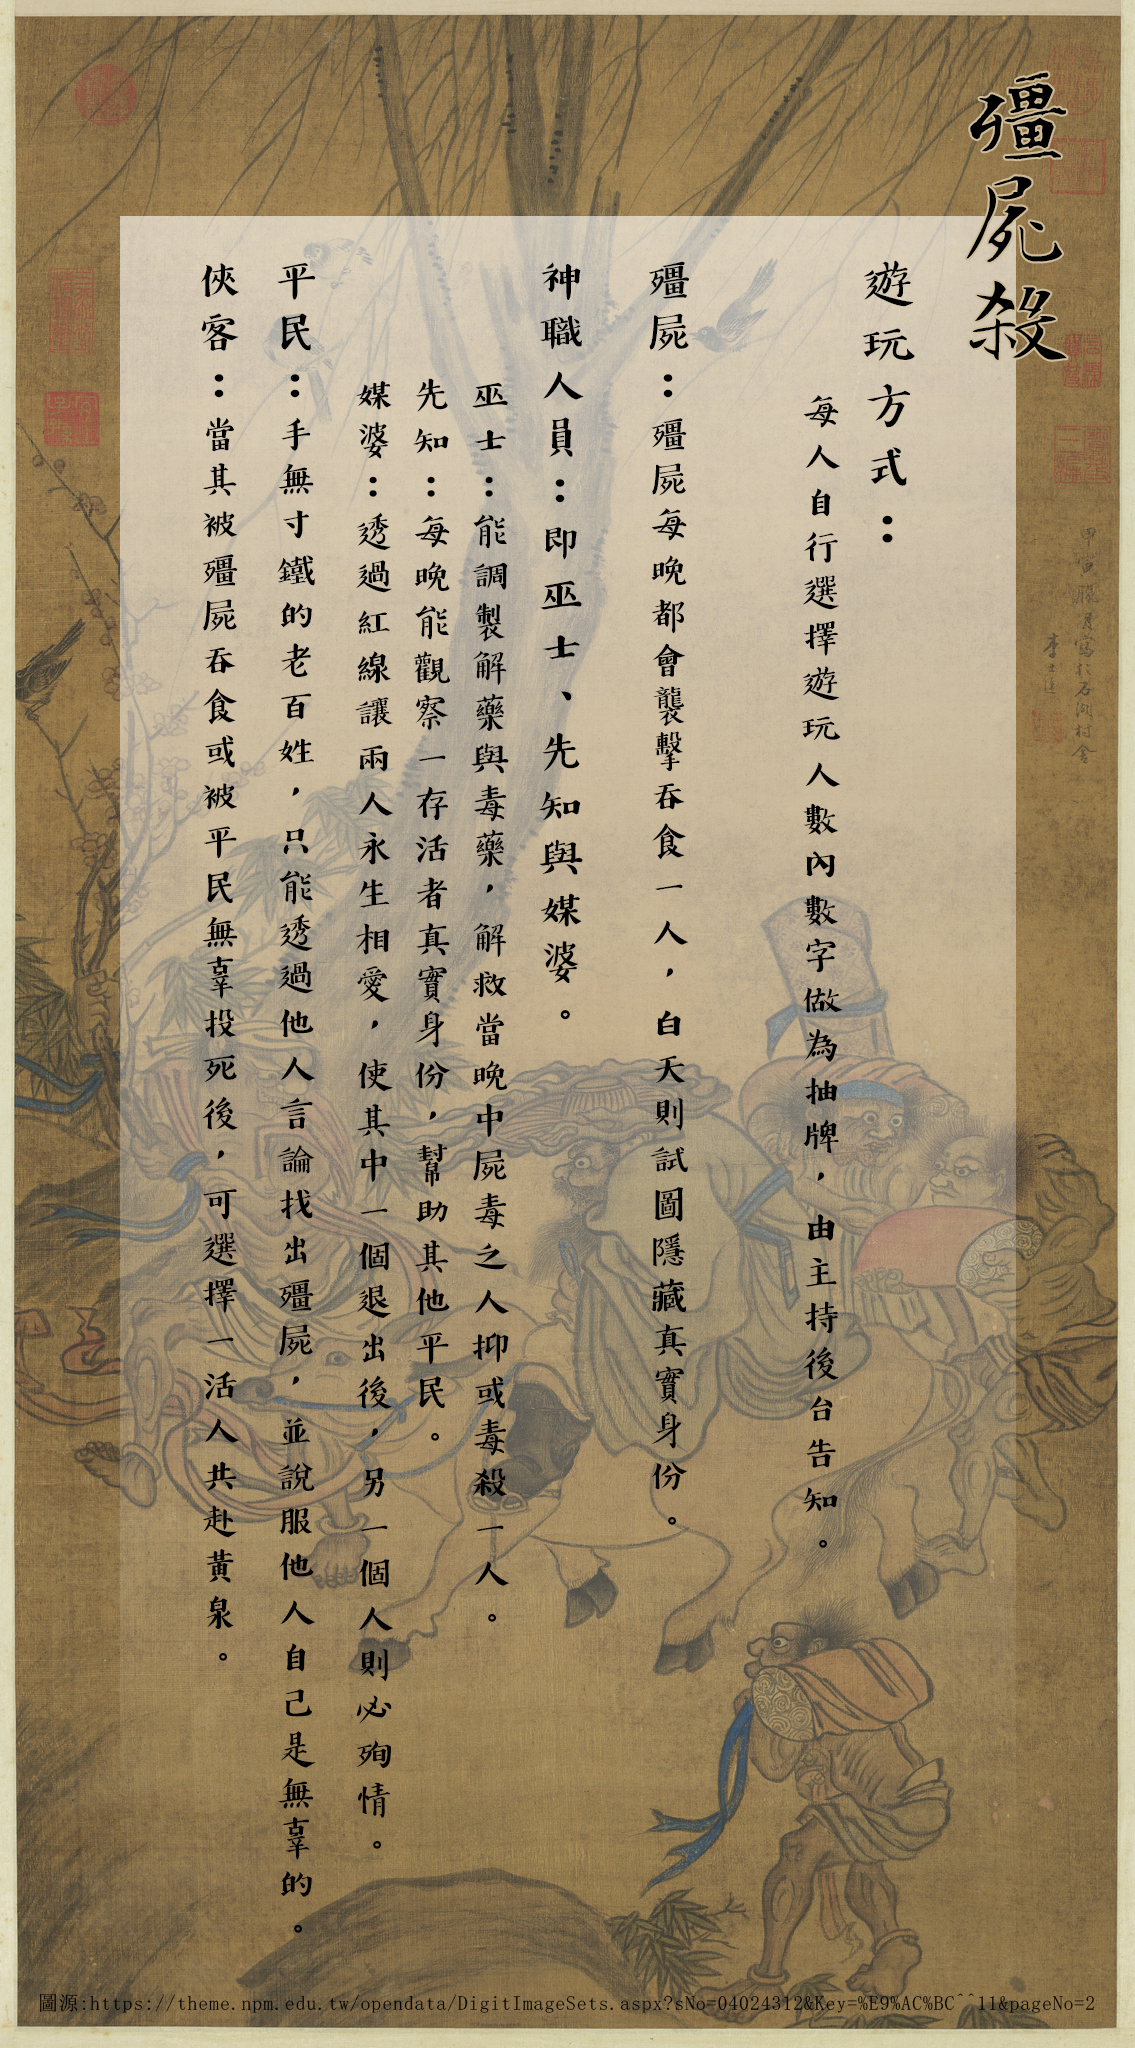 殭屍殺
遊玩方式：
每人自行選擇遊玩人數內數字做為抽牌，由主持後台告知。
殭屍：殭屍每晚都會襲擊吞食一人，白天則試圖隱藏真實身份。
神職人員：即巫士、先知與媒婆。
巫士：能調製解藥與毒藥，解救當晚中屍毒之人抑或毒殺一人。
先知：每晚能觀察一存活者真實身份，幫助其他平民。
媒婆：透過紅線讓兩人永生相愛，使其中一個退出後，另一個人則必殉情。
平民：手無寸鐵的老百姓，只能透過他人言論找出殭屍，並說服他人自己是無辜的。
俠客：當其被殭屍吞食或被平民無辜投死後，可選擇一活人共赴黃泉。
圖源:https://theme.npm.edu.tw/opendata/DigitImageSets.aspx?sNo=04024312&Key=%E9%AC%BC^^11&pageNo=2